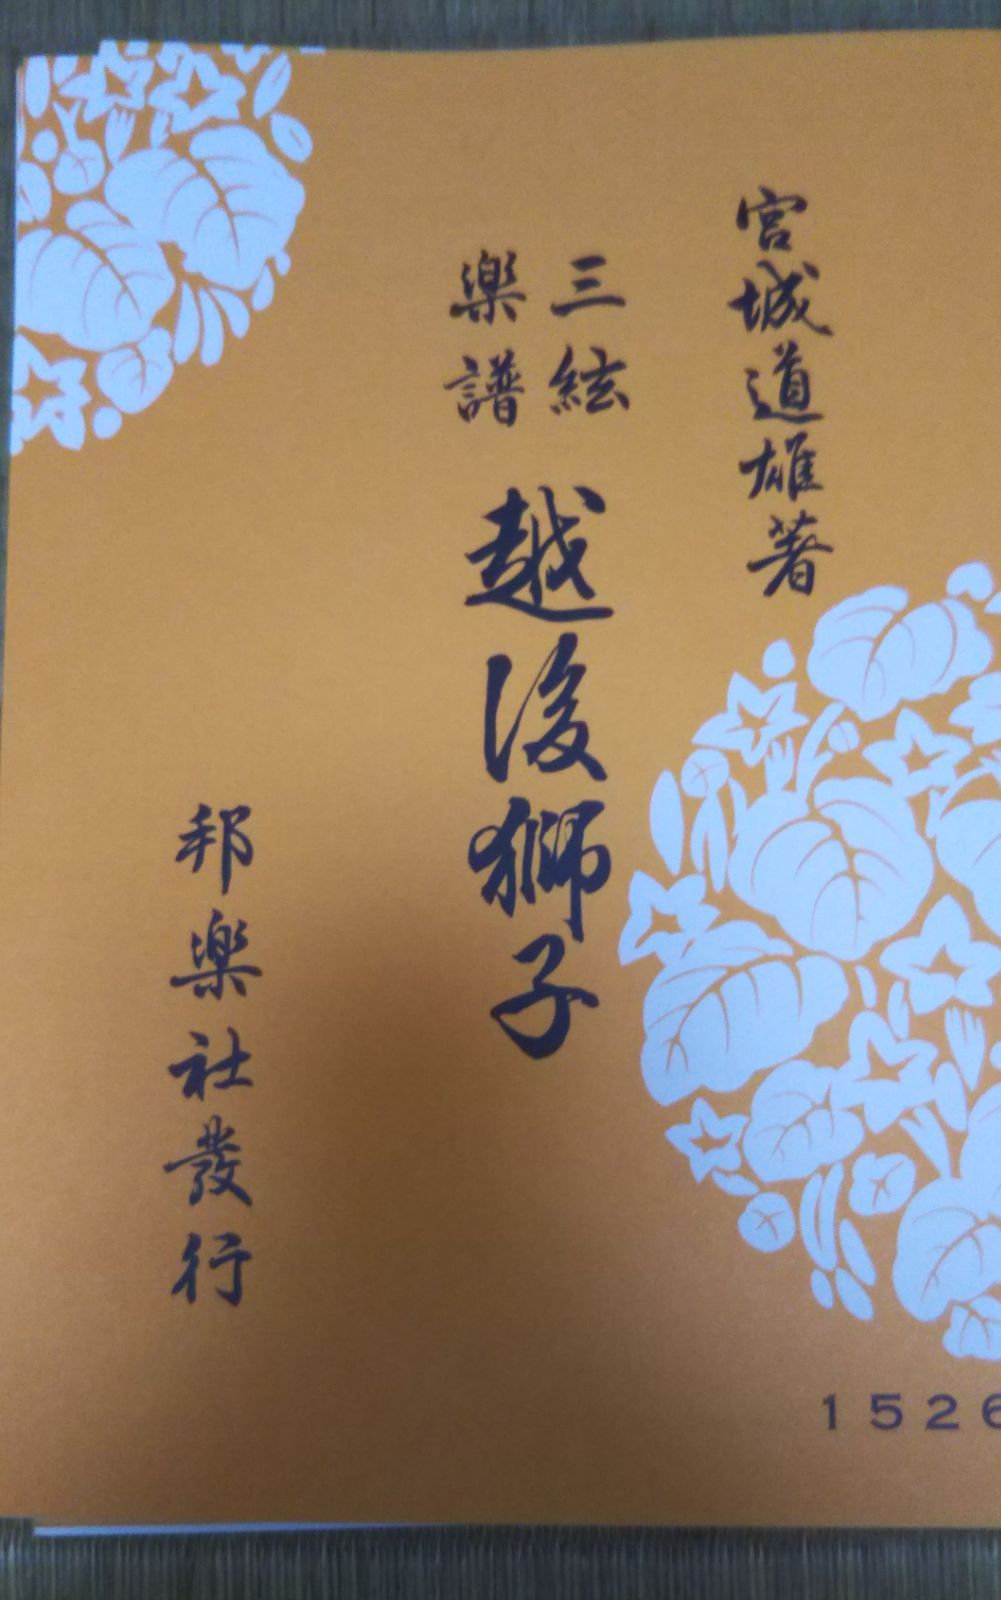 宮城道雄著
三絃
樂譜
越後獅子
邦樂社發行
1526